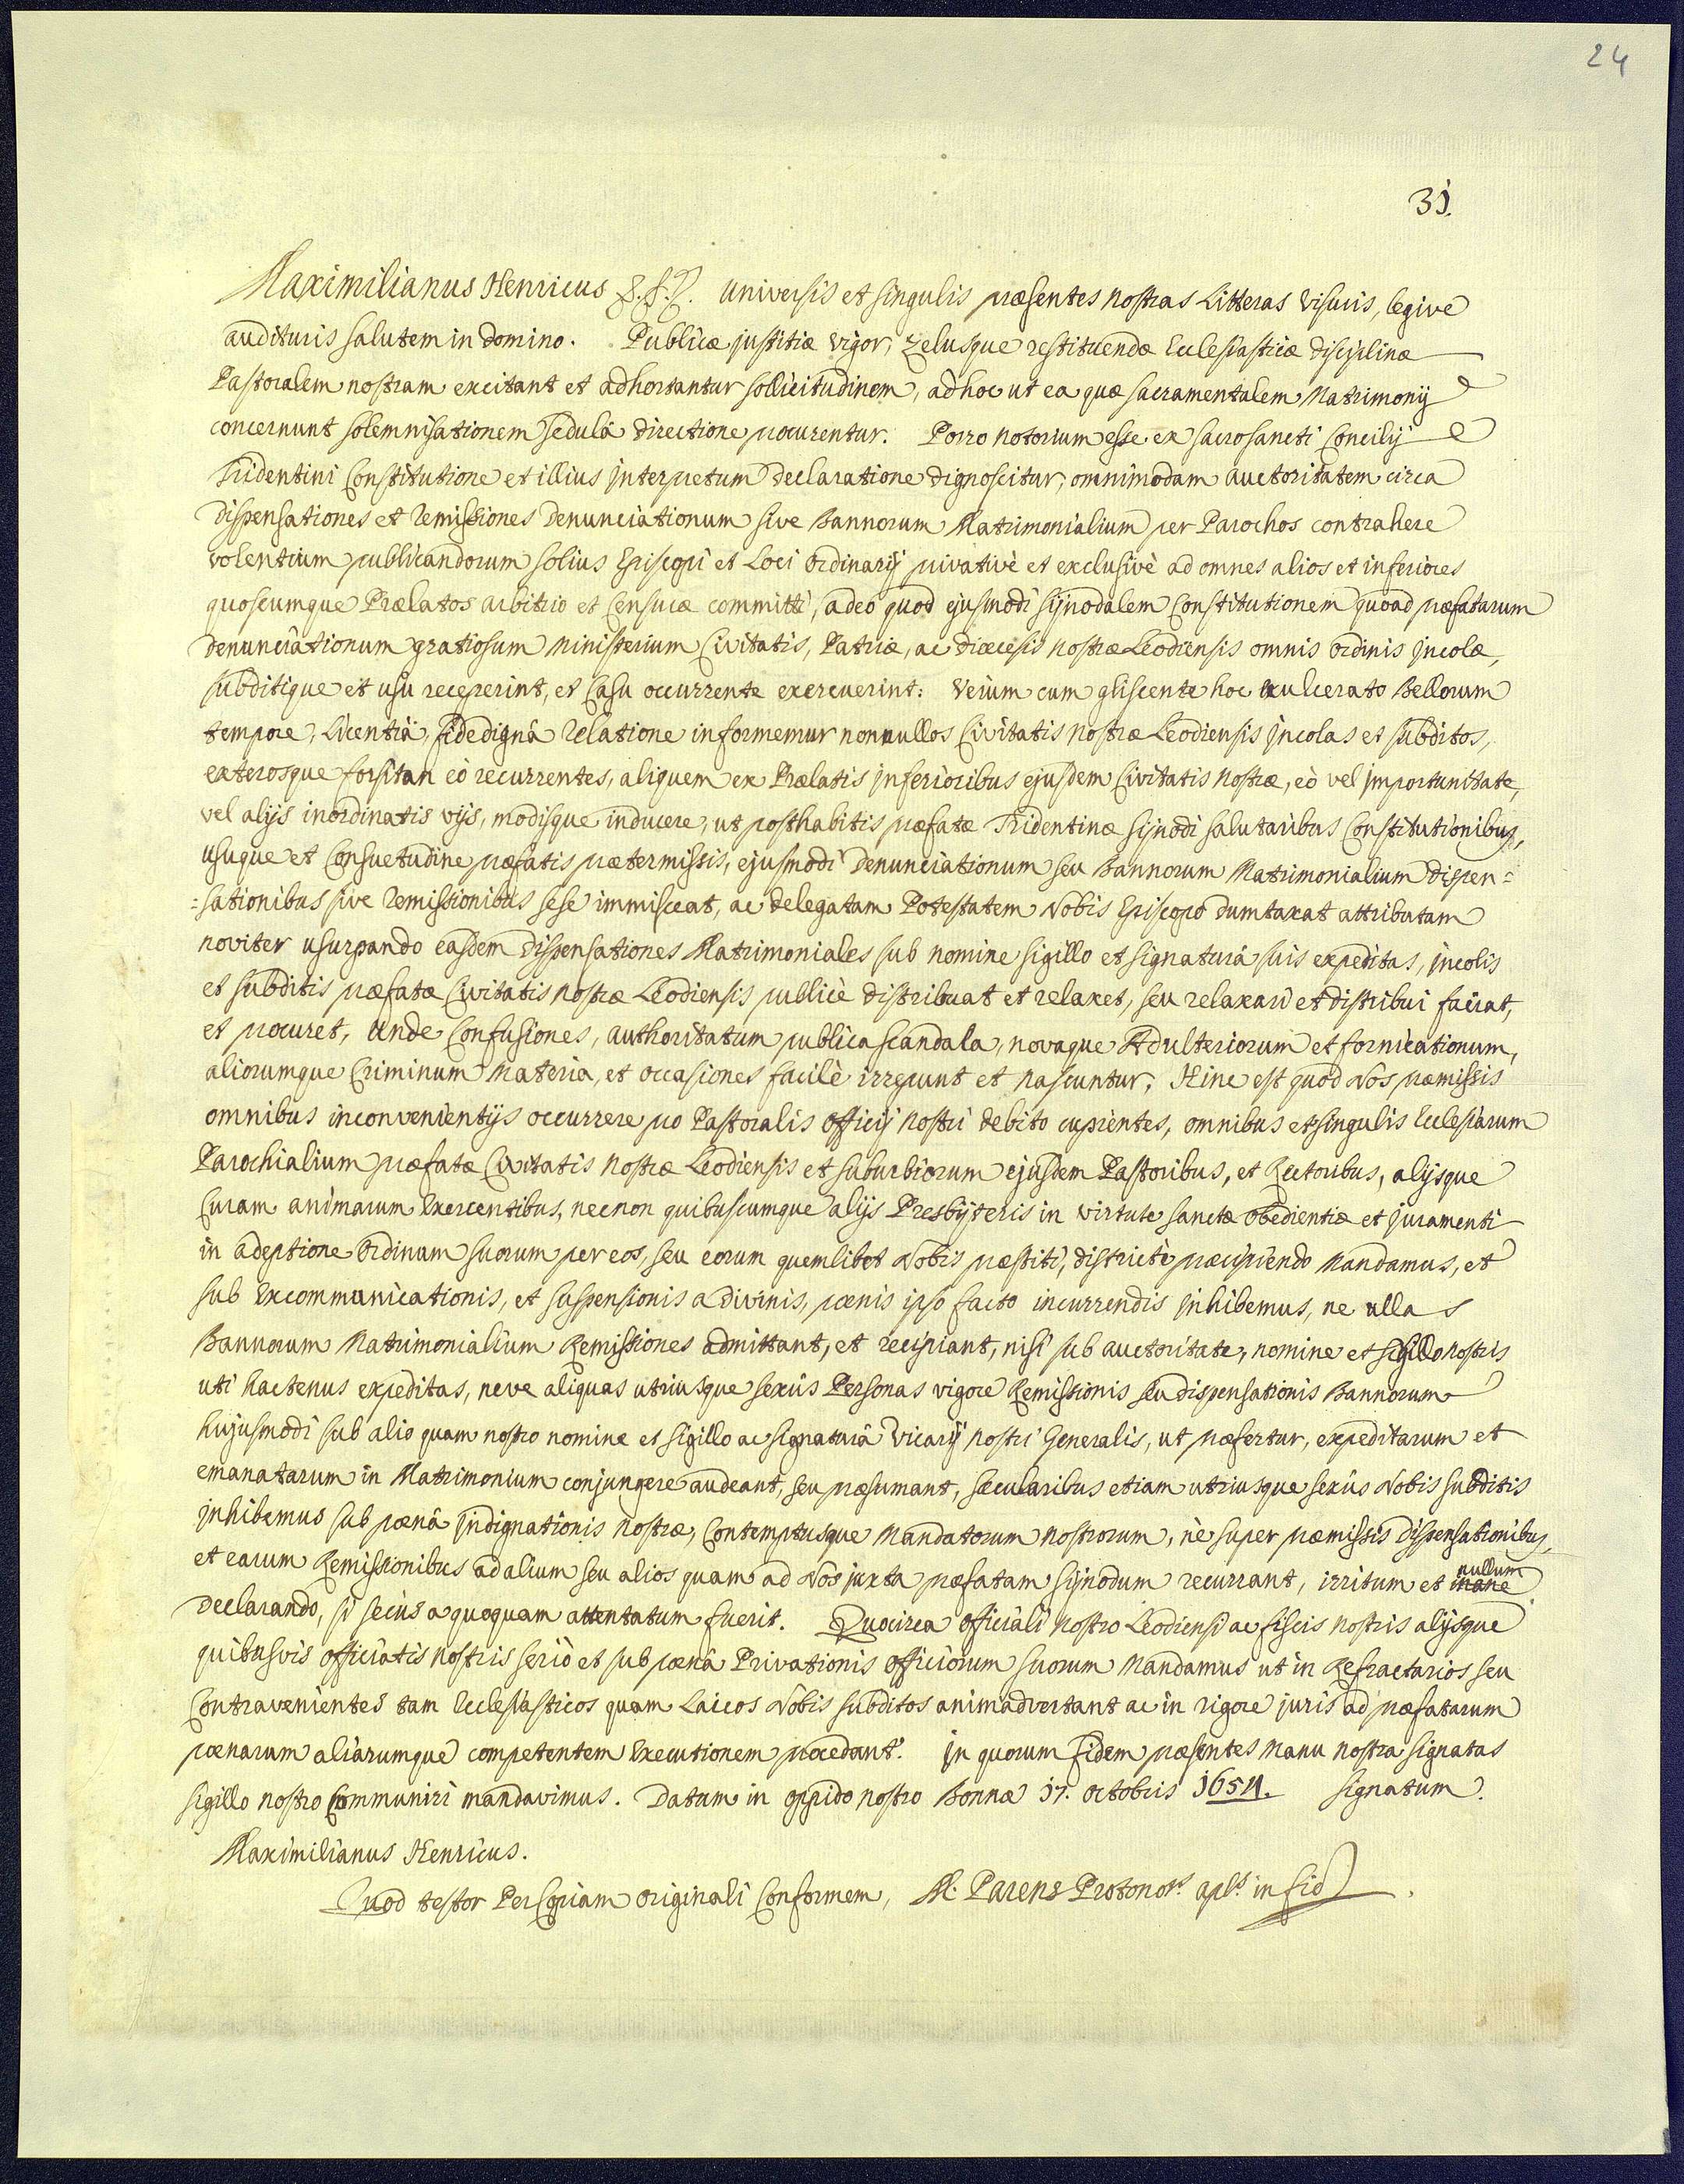 24
31.
Maximilianus Henricus &.&.&. Universis et singulis præsentes nostras Litteras visuris, legive
audituris salutem in Domino. Publicæ justitiæ vigor, Zelusque restituendæ Ecclesiasticæ disciplinæ
Pastoralem nostram excitant et adhortantur sollicitudinem, ad hoc ut ea quæ sacramentalem Matrimonij
concernunt solemnisationem sedulâ directione procurentur. Porro notorium esse ex sacrosancti Concilij
Tridentini Constitutione et illius jnterpretum Declaratione dignoscitur, omnimodam auctoritatem circa
dispensationes et remissiones Denunciationum sive Bannorum Matrimonialium per Parochos contrahere
volentium publicandorum solius Episcopi et Loci ordinarij privativè et exclusivè ad omnes alios et inferiores
quoscumque Prælatos arbitrio et Censuræ committi, adeò quod ejusmodi sijnodalem Constitutionem quoad præfatarum
denunciationum gratiosum ministerium Civitatis, Patriæ, ac diœcesis nostræ Leodiensis omnis ordinis jncolæ,
subditique et usu receperint, et Casu occurrente exercuerint: Verum cum gliscente hoc exulcerato Bellorum
tempore, Licentiâ, fide dignâ relatione informemur nonnullos Civitatis nostræ Leodiensis jncolas et subditos,
exterosque forsitan eò recurrentes, aliquem ex Prælatis jnferioribus ejusdem Civitatis nostræ, eò vel jmportunitate,
vel alijs inordinatis vijs, modisque inducere, ut posthabitis præfatæ Tridentinæ sijnodi salutaribus Constitutionibus,
usuque et Consuetudine præfatis prætermissis, ejusmodi Denunciationum seu Bannorum Matrimonialium dispen=
=sationibus sive remissionibus sese immisceat, ac delegatam Potestatem Nobis Episcopo dumtaxat attributam
noviter usurpando easdem dispensationes Matrimoniales sub nomine sigillo et signaturâ suis expeditas, jncolis
et subditis præfatæ Civitatis nostræ Leodiensis publicè distribuat et relaxet, seu relaxari et distribui faciat,
et procuret, unde Confusiones, authoritatum publica scandala, novaque Adulteriorum et fornicationum,
aliorumque Criminum materia, et occasiones facilè irrepunt et nascuntur, Hinc est quod Nos præmissis
omnibus inconvenientijs occurrere pro Pastoralis officij nostri debito cupientes, omnibus et singulis Ecclesiarum
Parochialium præfatæ Civitatis nostræ Leodiensis et suburbiorum ejusdem Pastoribus, et Rectoribus, alijsque
Curam animarum Exercentibus, necnon quibuscumque alijs Presbijteris in virtute sanctæ obedientiæ et juramenti
in adeptione ordinum suorum per eos, seu eorum quemlibet Nobis præstiti, districtè præcipiendo mandamus, et
sub Excommunicationis, et suspensionis a divinis, pœnis ipso facto incurrendis jnhibemus, ne ullas
Bannorum Matrimonialium Remissiones admittant, et recipiant, nisi sub auctoritate, nomine et sigillo nostris
uti hactenus expeditas, neve aliquas utriusque sexûs Personas vigore Remissionis seu dispensationis Bannorum
hujusmodi sub alio quam nostro nomine et sigillo ac signaturâ Vicarij nostri Generalis, ut præfertur, expeditarum et
emanatarum in Matrimonium conjungere audeant, seu præsumant, sæcularibus etiam utriusque sexûs Nobis subditis
jnhibemus sub pœnâ jndignationis nostræ, Contemptusque mandatorum nostrorum, nè super præmissis Dispensationibus,
et earum Remissionibus ad alium seu alios quam ad Nos juxta præfatam sijnodum recurrant, irritum et inane nullum
Declarando, si secùs a quoquam attentatum fuerit. Quocirca officiali nostro Leodiensi ac fiscis nostris alijsque
quibusvis officiatis nostris seriò et sub pœnâ Privationis officiorum suorum mandamus ut in Refractarios seu
Contravenientes tam Ecclesiasticos quam Laicos Nobis subditos animadvertant ac in rigore juris ad præfatarum
pœnarum aliarumque competentem Executionem procedant. Jn quorum fidem præsentes manu nostra signatas
sigillo nostro Communiri mandavimus. Datum in oppido nostro Bonnæ 17. octobris 1654. Signatum.
Maximilianus Henricus.
Quod testor Per Copiam originali Conformem, M. Parens Protonots. apls. in fid